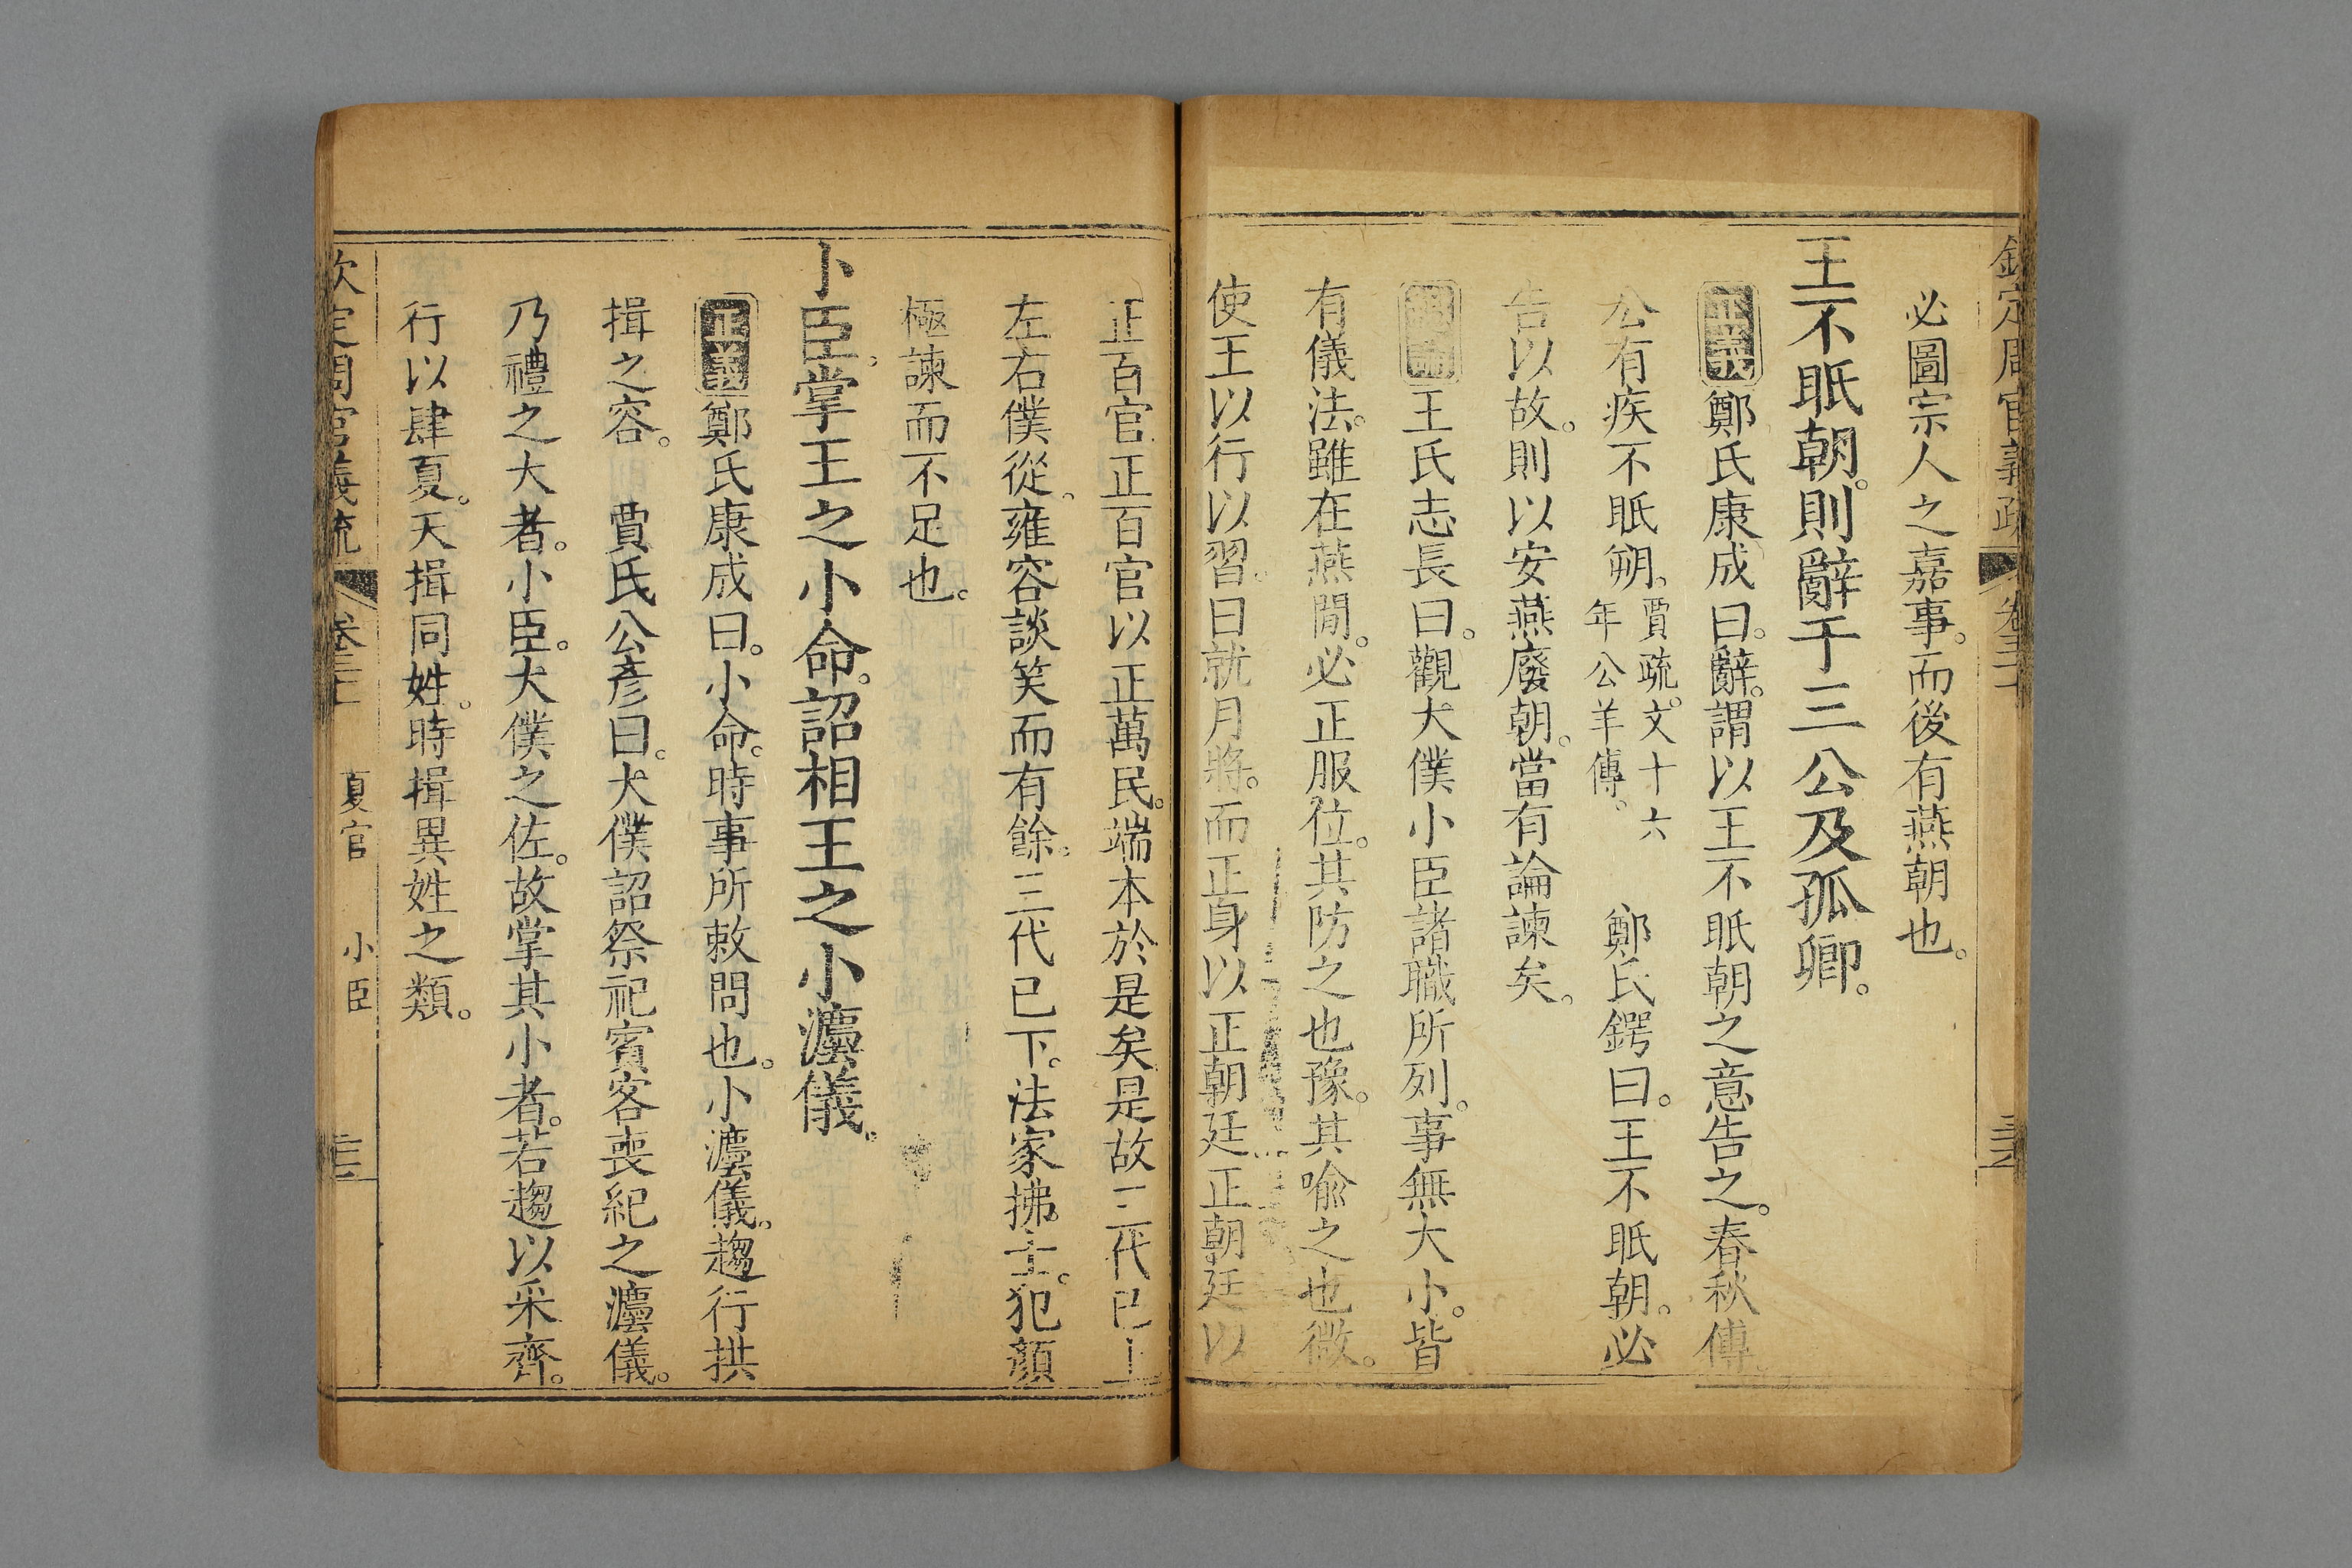 欽定周官義疏 卷三十一
必圖宗人之嘉事。而後有燕朝也。
王不眡朝。則辭于三公及孤卿。
正義鄭氏康成曰。辭。謂以王不眡朝之意告之。春秋傳。
公有疾不眡朔。賈疏。文十六年公羊傳。 鄭氏鍔曰。王不眡朝。必
告以故。則以安燕廢朝。當有論諫矣。
王氏志長曰。觀大僕小臣諸職所列。事無大小。皆
有儀法。雖在燕閒。必正服位。其防之也豫。其喻之也微。
使王以行以習。日就月將。而正身以正朝廷正朝廷以
正百官正百官以正萬民。端本於是矣是故三代已上
左右僕從。雍容談笑而有餘。三代已下。法家拂士。犯顏
極諫而不足也。
小臣。掌王之小命。詔相王之小灋儀。
正義鄭氏康成曰。小命。時事所敕問也。小灋儀。趨行拱
揖之容。 賈氏公彥曰。大僕詔祭祀賓客喪紀之灋儀。
乃禮之大者。小臣。大僕之佐。故掌其小者。若趨以采齊。
行以肆夏。天揖同姓。時揖異姓之類。
欽定周官義疏 卷三十一 夏官 小臣